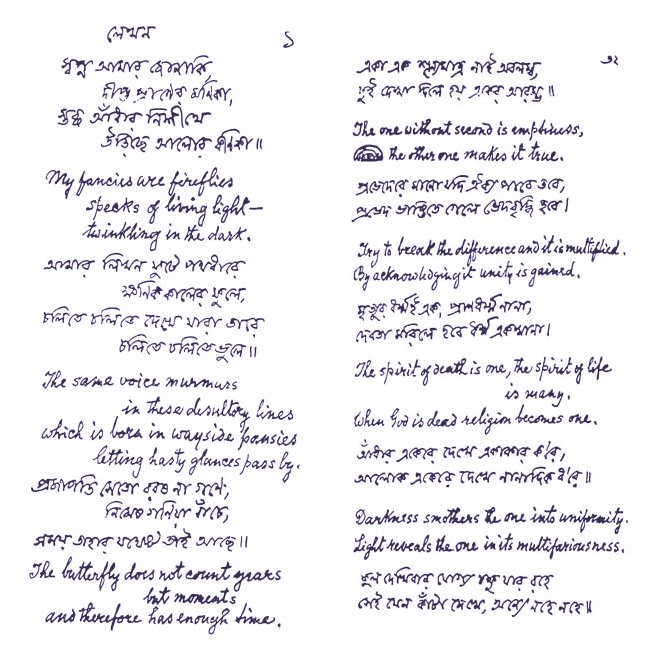 লেখন
১
স্বপ্ন আমার জোনাকি,
দীপ্ত প্রাণের মণিকা,
স্তব্ধ আঁধার নিশীথে
উড়িছে আলোর কণিকা॥
My fancies are fireflies
specks of living light—
twinkling in the dark.
আমার লিখন ফুটে পথধারে
ক্ষণিক কালের ফুলে,
চলিতে চলিতে দেখে যারা তারে
চলিতে চলিতে ভুলে॥
The same voice murmurs
in these desultory lines
which is born in wayside pansies
letting hasty glances pass by.
প্রজাপতি সেতো বরষ না গণে,
নিমেষ গণিয়া বাঁচে,
সময় তাহার যথেষ্ট তাই আছে॥
The butterfly does not count years
but moments
and therefore has enough time.
৩২
একা এক শূন্যমাত্র নাই অবলম্ব,
দুই দেখা দিলে হয় একের আরম্ভ॥
The one without second is emptiness,
the other one makes it true.
প্রভেদেরে মানো যদি ঐক্য পাবে তবে,
প্রভেদ ভাঙিতে গেলে ভেদবৃদ্ধি হবে।
Try to break the difference and it is multiplied.
By acknowledging it unity is gained.
মৃত্যুর ধর্ম্মই এক, প্রাণধর্ম্ম নানা,
দেবতা মরিলে হবে ধর্ম্ম একখানা।
The spirit of death is one, the spirit of life
is many.
When God is dead religion becomes one.
আঁধার একেরে দেখে একাকার ক'রে,
আলোক একেরে দেখে নানাদিক ধ'রে॥
Darkness smothers the one into uniformity.
Light reveals the one in its multifariousness.
ফুল দেখিবার যোগ্য চক্ষু যার রহে
সেই যেন কাঁটা দেখে, অন্যে নহে নহে॥